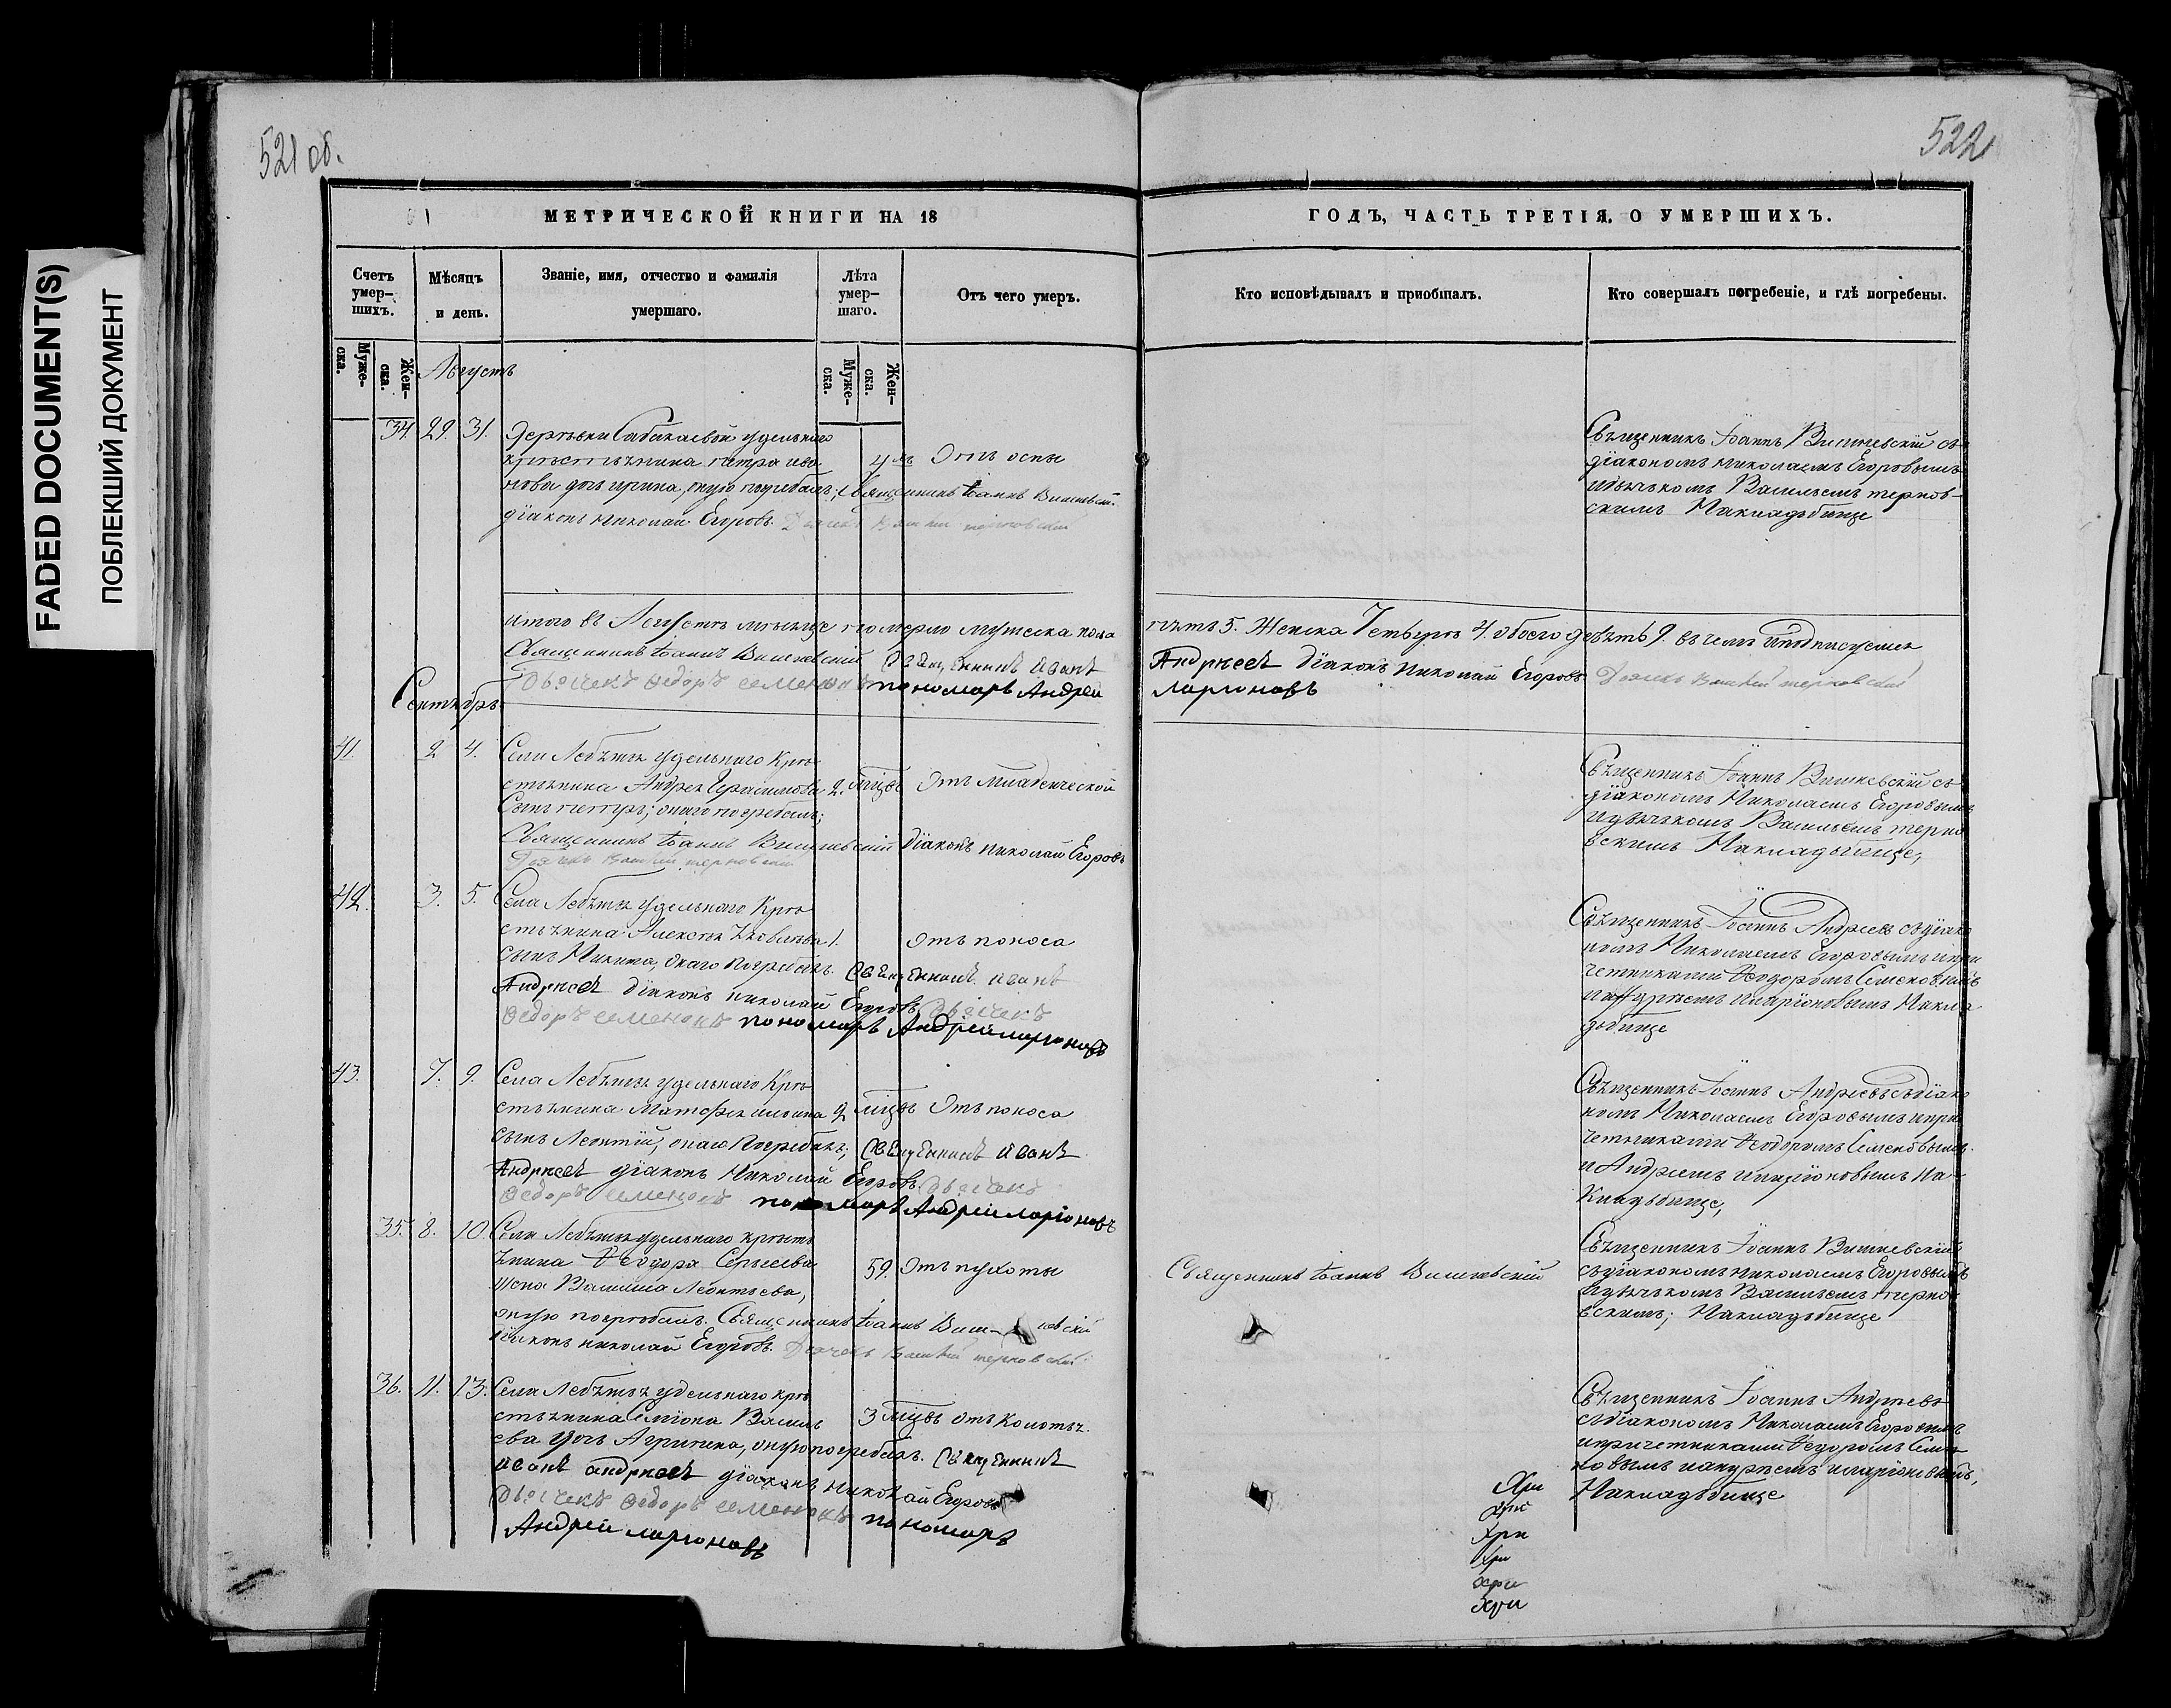 FADED DOCUMENT(S)
ПОБЛЕКШИЙ ДОКУМЕНТ
521 об.
522
МЕТРИЧЕСКОЙ КНИГИ НА 18
ГОДЪ, ЧАСТЬ ТРЕТІЯ, О УМЕРШИХЪ.
Счетъ умер-шихъ.
Мѣсяцъ и день.
Званіе, имя, отчество и фамилія умершаго.
Лѣта умер-шаго.
Отъ чего умеръ.
Кто исповѣдывалъ и пріобщалъ.
Кто совершалъ погребеніе, и гдѣ погребены.
Муже-ска.
Жен-ска.
Муже-ска.
Жен-ска.
Августъ
34. 29. 31. Деревни Сабакаевой удельнаго
крестьянина Петра Ива
4 Отъ оспы
нова дочь Ирина, оную погребалъ: Священникъ Іоаннъ Вишневскій
діаконъ Николай Егоровъ. Дьячекъ Василій терновскій
Священникъ Іоаннъ Вишневскій съ
діакономъ Николаемъ Егоровымъ
идьячкомъ Васильемъ тернов-
скимъ Накладбище
итого въ Августѣ мѣсяце померло мужеска пола
пять 5. Женска Четверо 4. обоего девять 9. въ чемъ иподписуемся
Священникъ Іоаннъ Вишневскій Священникъ Иванъ
Андреевъ діаконъ Николай Егоровъ Дьячекъ Василій терновскій
Дьячекъ Федоръ семеновъ пономарь Андрей
Ларионовъ
Сентябрь
41. 2 4. Села Лебяжья удельнаго Кре
стьянина Андрея Герасимова 2. мцвъ Отъ младенческой
Сынъ петръ; онаго погребалъ;
Священникъ Іоаннъ Вишневскій Діаконъ Николай Егоровъ
Дьячекъ Василій терновскій
Священникъ Іоаннъ Вишневскій съ
діакономъ Николаемъ Егоровымъ
идьячкомъ Васильемъ терно
вскимъ Накладбище,
42. 3. 5. Села Лебяжья удельнаго Кре
стьянина Алексея Яковлева 1. Отъ поноса
сынъ Никита, онаго погребалъ. Священникъ Иванъ
Андреевъ діаконъ Николай Егоровъ Дьячекъ
Федоръ семеновъ пономарь Андрей ларионовъ
Священникъ Іоаннъ Андреевъ сдіако
номъ Николаемъ Егоровымъ ипри
четниками Феодоромъ Семеновымъ
иАндреемъ иларіоновымъ Накла
дбище
43. 7. 9. Села Лебяжья удельнаго Кре
стьянина Матофея ильина 2 мцвъ Отъ поноса
сынъ Леонтій, онаго погребалъ; Священникъ Иванъ
Андреевъ діаконъ Николай Егоровъ. Дьячекъ
Федоръ семеновъ пономарь Андрей ларіоновъ
Священникъ Іоаннъ Андреевъ съдіако
номъ Николаемъ Егоровымъ ипри
четниками Феодоромъ Семеновымъ
иАндреемъ иларіоновымъ На-
Кладбище,
35. 8. 10. Села Лебяжья удельнаго кресть
янина Феодора Сергеева 59. Отъ пухоты
жена Васильева Леонтьева,
оную погребалъ. Священникъ Іоаннъ Вишневскій
діаконъ Николай Егоровъ. Дьячекъ Василій терновскій
Священникъ Іоаннъ Вишневскій
Священникъ Іоаннъ Вишневскій
съдіакономъ Николаемъ Егоровымъ
идьячкомъ Васильемъ терно
вскимъ; Накладбище
36. 11. 13. Села Лебяжья удельнаго кре
стьянина Семіона Василь 3 мцвъ отъ Колотья.
ева дочь Агрипена, онуюпогребалъ. Священникъ
иванъ андреевъ діаконъ Николай Егоровъ
Дьячекъ Федоръ семеновъ пономарь
Андрей ларионовъ
Священникъ Іоаннъ Андреевъ
съдіакономъ Николаемъ Егоровымъ
ипричетниками Федоромъ Семе
новымъ иандреемъ иларіоновымъ,
Накладбище
Хри
Хри
Хри
Хри
Хри
Хри